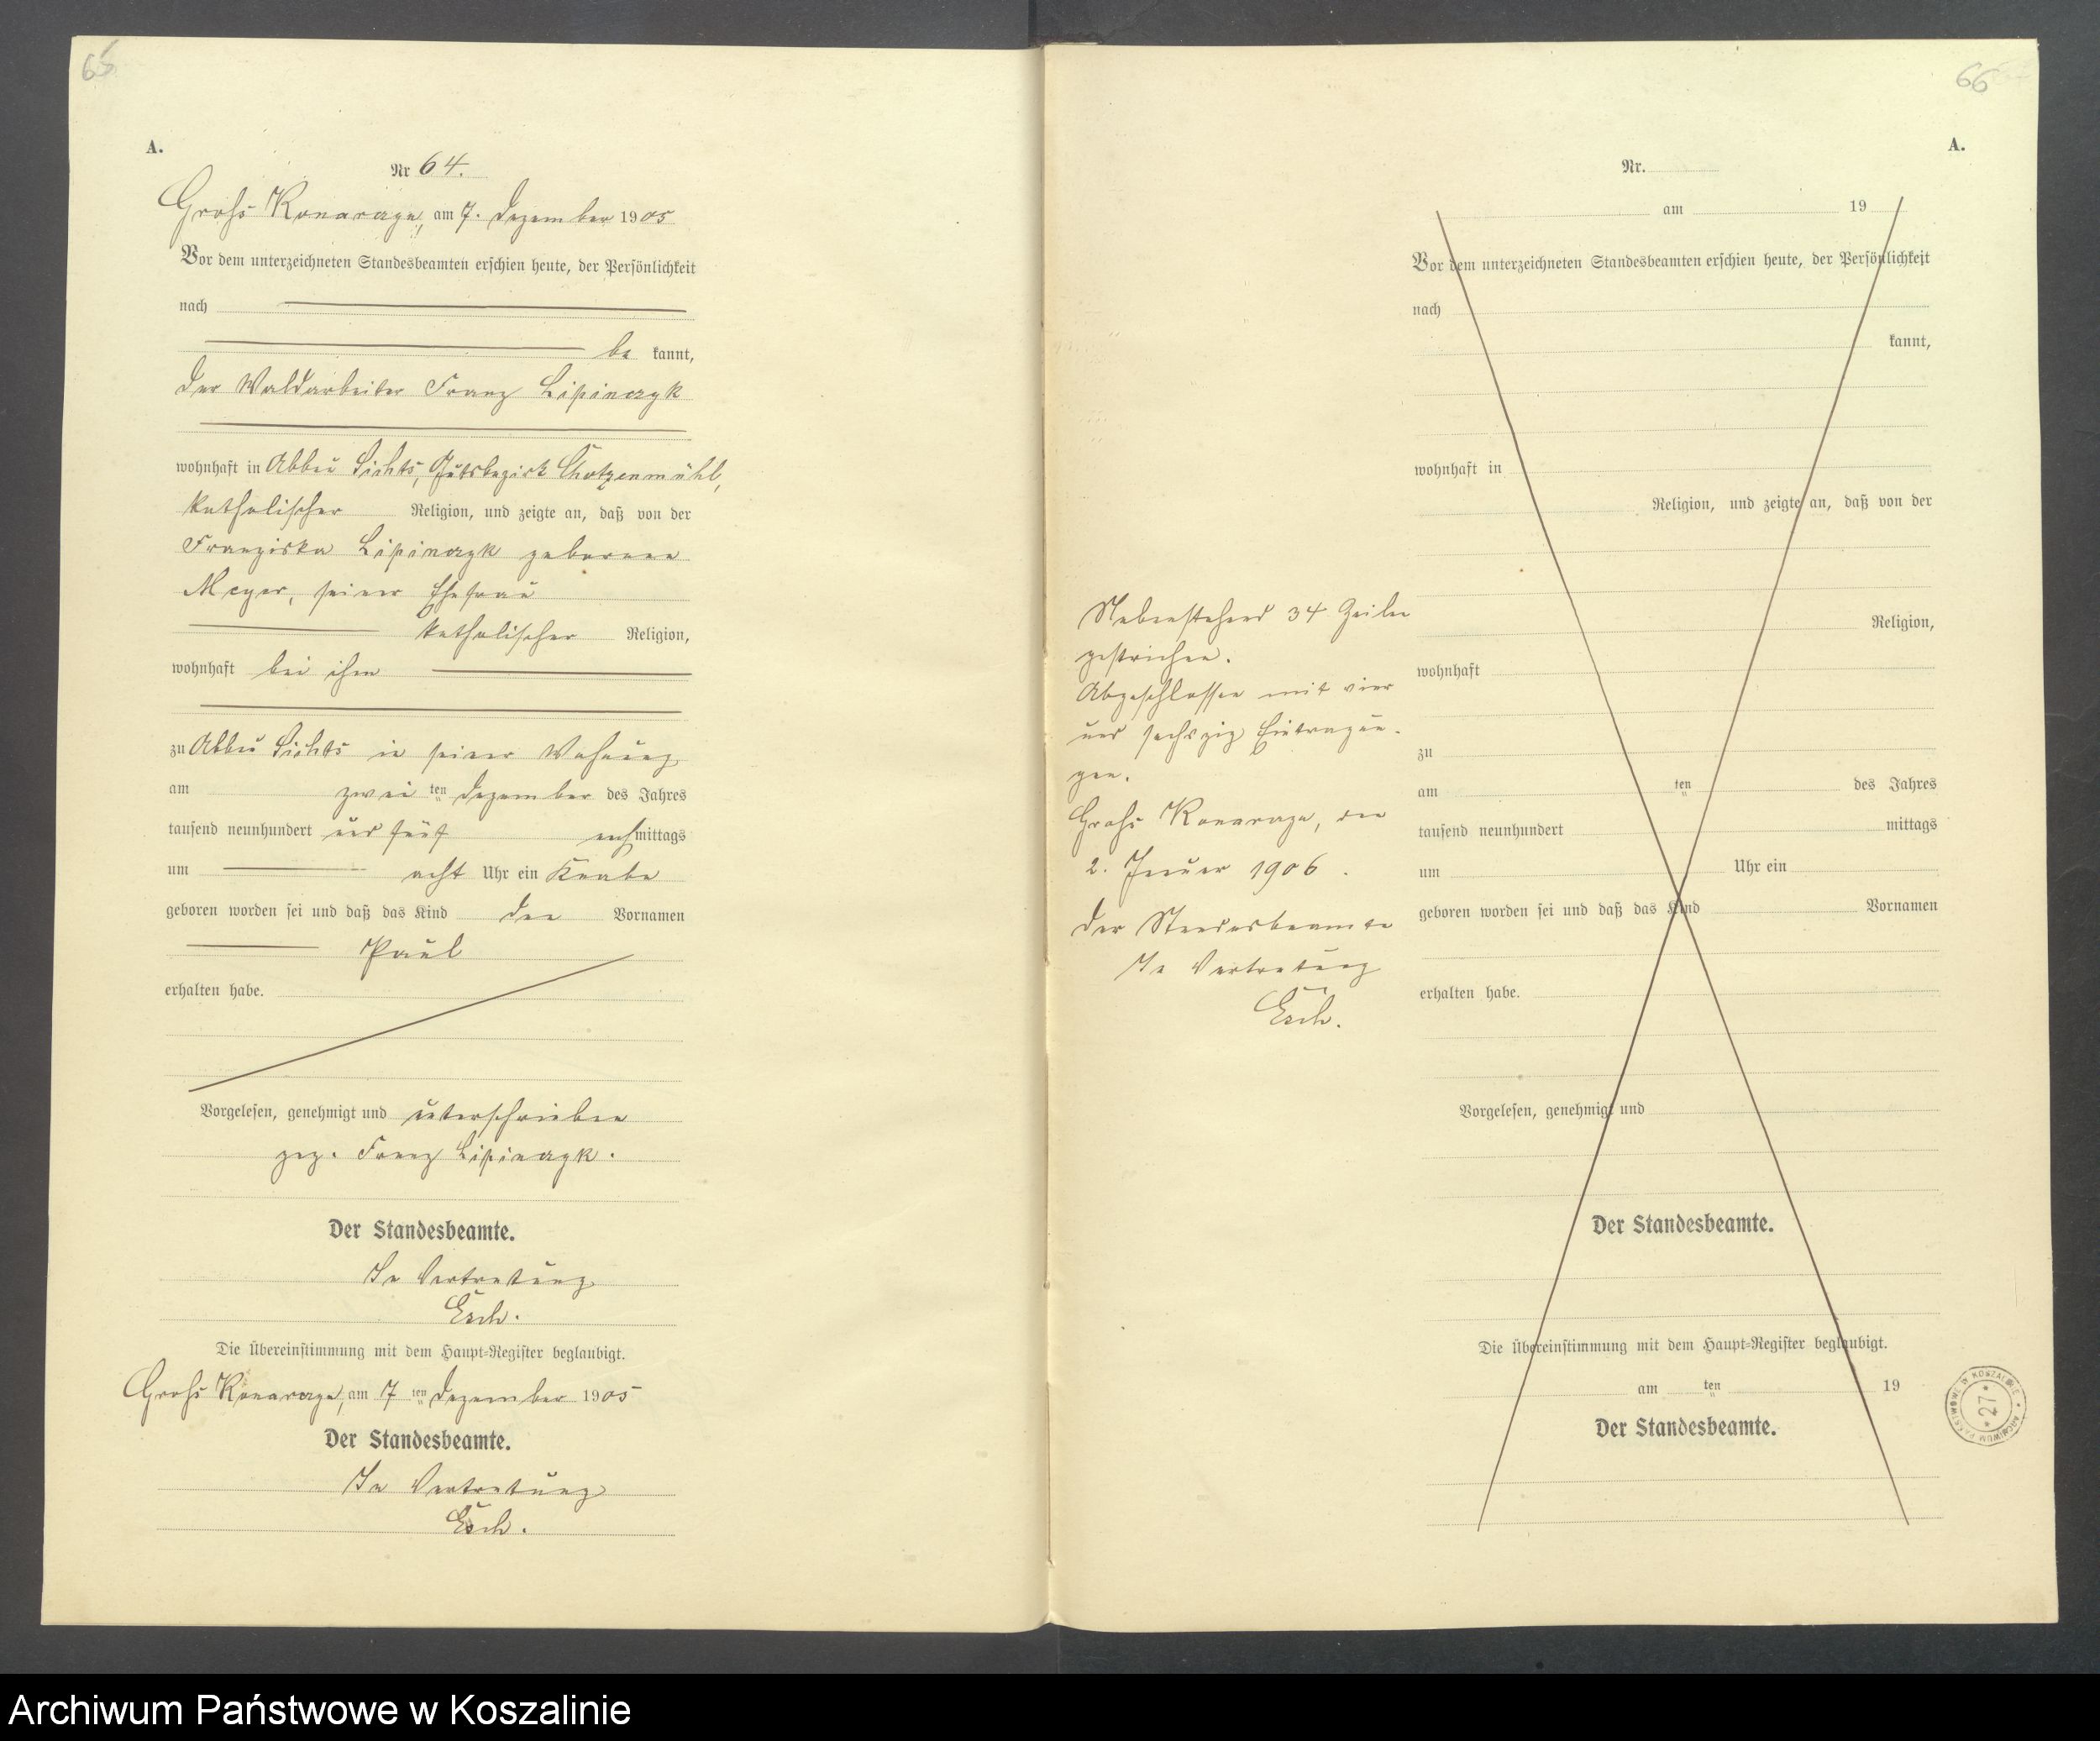 65
A.
Nr 64.
Groß Konarczyn, am 7. Dezember 1905
Vor dem unterzeichneten Standesbeamten erschien heute, der Persönlichkeit
nach
be kannt,
der Waldarbeiter Franz Lipinczyk
wohnhaft in Abbau Lichts, Gutsbezirk Chotzenmühl,
katholischer Religion, und zeigte an, daß von der
Franziska Lipinczyk geborenen
Meyer, seiner Ehefrau
katholischer Religion,
wohnhaft bei ihm
zu Abbau Lichts in seiner Wohnung
am zwei ten Dezember des Jahres
tausend neunhundert und fünf nachmittags
um acht Uhr ein Knabe
geboren worden sei und daß das Kind den Vornamen
Paul
erhalten habe.
Vorgelesen, genehmigt und unterschrieben
gez. Franz Lipinczyk.
Der Standesbeamte.
In Vertretung
Esch.
Die Übereinstimmung mit dem Haupt-Register beglaubigt.
Groß Konarczyn, am 7 ten Dezember 1905
Der Standesbeamte.
In Vertretung
Esch.
66
A.
Nr.
am 19
Vor dem unterzeichneten Standesbeamten erschien heute, der Persönlichkeit
nach
kannt,
wohnhaft in
Religion, und zeigte an, daß von der
Religion,
wohnhaft
zu
am ten des Jahres
tausend neunhundert mittags
um Uhr ein
geboren worden sei und daß das Kind Vornamen
erhalten habe.
Vorgelesen, genehmigt und
Der Standesbeamte.
Die Übereinstimmung mit dem Haupt-Register beglaubigt.
am ten 19
Der Standesbeamte.
Nebenstehend 34 Zeilen
gestrichen.
Abgeschlossen mit vier
und sechszig Eintragun-
gen.
Groß Konarczyn, den
2. Januar 1906.
Der Standesbeamte
In Vertretung
Esch.
ARCHIWUM PAŃSTWOWE W KOSZALINIE
* 27 *
Archiwum Państwowe w Koszalinie